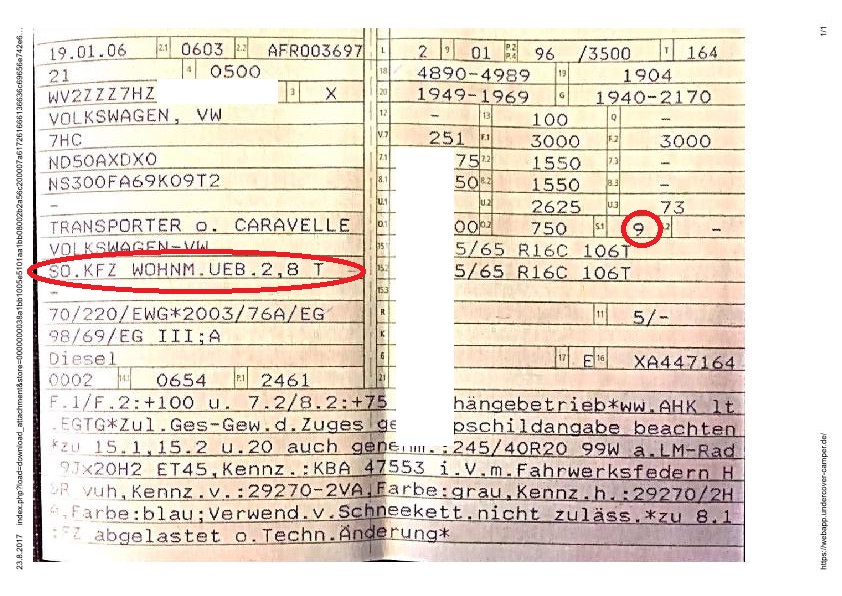 19.01.06 2.1 0603 2.2 AFR003697
21 4 0500
WV2ZZZ7HZ 3 X
VOLKSWAGEN, VW
7HC
ND50AXDX0
NS300FA69K09T2
-
TRANSPORTER o. CARAVELLE
VOLKSWAGEN-VW
SO.KFZ WOHNM.UEB.2,8 T -
-
70/220/EWG*2003/76A/EG
98/69/EG III;A
Diesel
0002 14.1 0654 P.1 2461
L 2 9 01 P.2 P.4 96 /3500 T 164
18 4890-4989 19 1904
20 1949-1969 G 1940-2170
12 - 13 100 Q -
V.7 251 F.1 3000 F.2 3000
7.1 75 7.2 1550 7.3 -
8.1 50 8.2 1550 8.3 -
U.1 U.2 2625 U.3 73
O.1 00 O.2 750 S.1 9 .2 -
15 5/65 R16C 106T
15.2 5/65 R16C 106T
15.3
R 11 5/-
K
6 17 E 16 XA447164
21
F.1/F.2:+100 u. 7.2/8.2:+75 hängebetrieb*ww.AHK lt
.EGTG*Zul.Ges-Gew.d.Zuges ge pschildangabe beachten
*zu 15.1,15.2 u.20 auch genehm.:245/40R20 99W a.LM-Rad
9Jx20H2 ET45,Kennz.:KBA 47553 i.V.m.Fahrwerksfedern H
&R vuh,Kennz.v.:29270-2VA,Farbe:grau,Kennz.h.:29270/2H
,Farbe:blau;Verwend.v.Schneekett.nicht zuläss.*zu 8.1
:FZ abgelastet o.Techn.Änderung*
23.8.2017
1/1
https://webapp.undercover-camper.de/